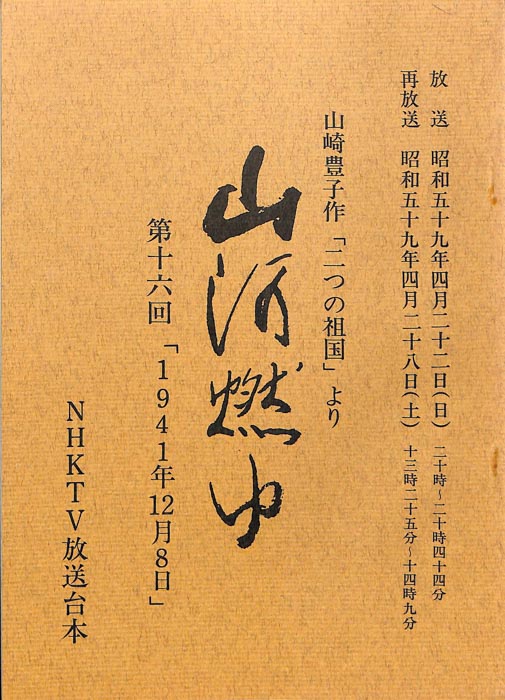 放　送　昭和五十九年四月二十二日(日)　二十時～二十時四十四分
再放送　昭和五十九年四月二十八日(土)　十三時二十五分～十四時九分
山崎豊子作「二つの祖国」より
山河燃ゆ
第十六回「1941年12月8日」
NHKTV放送台本